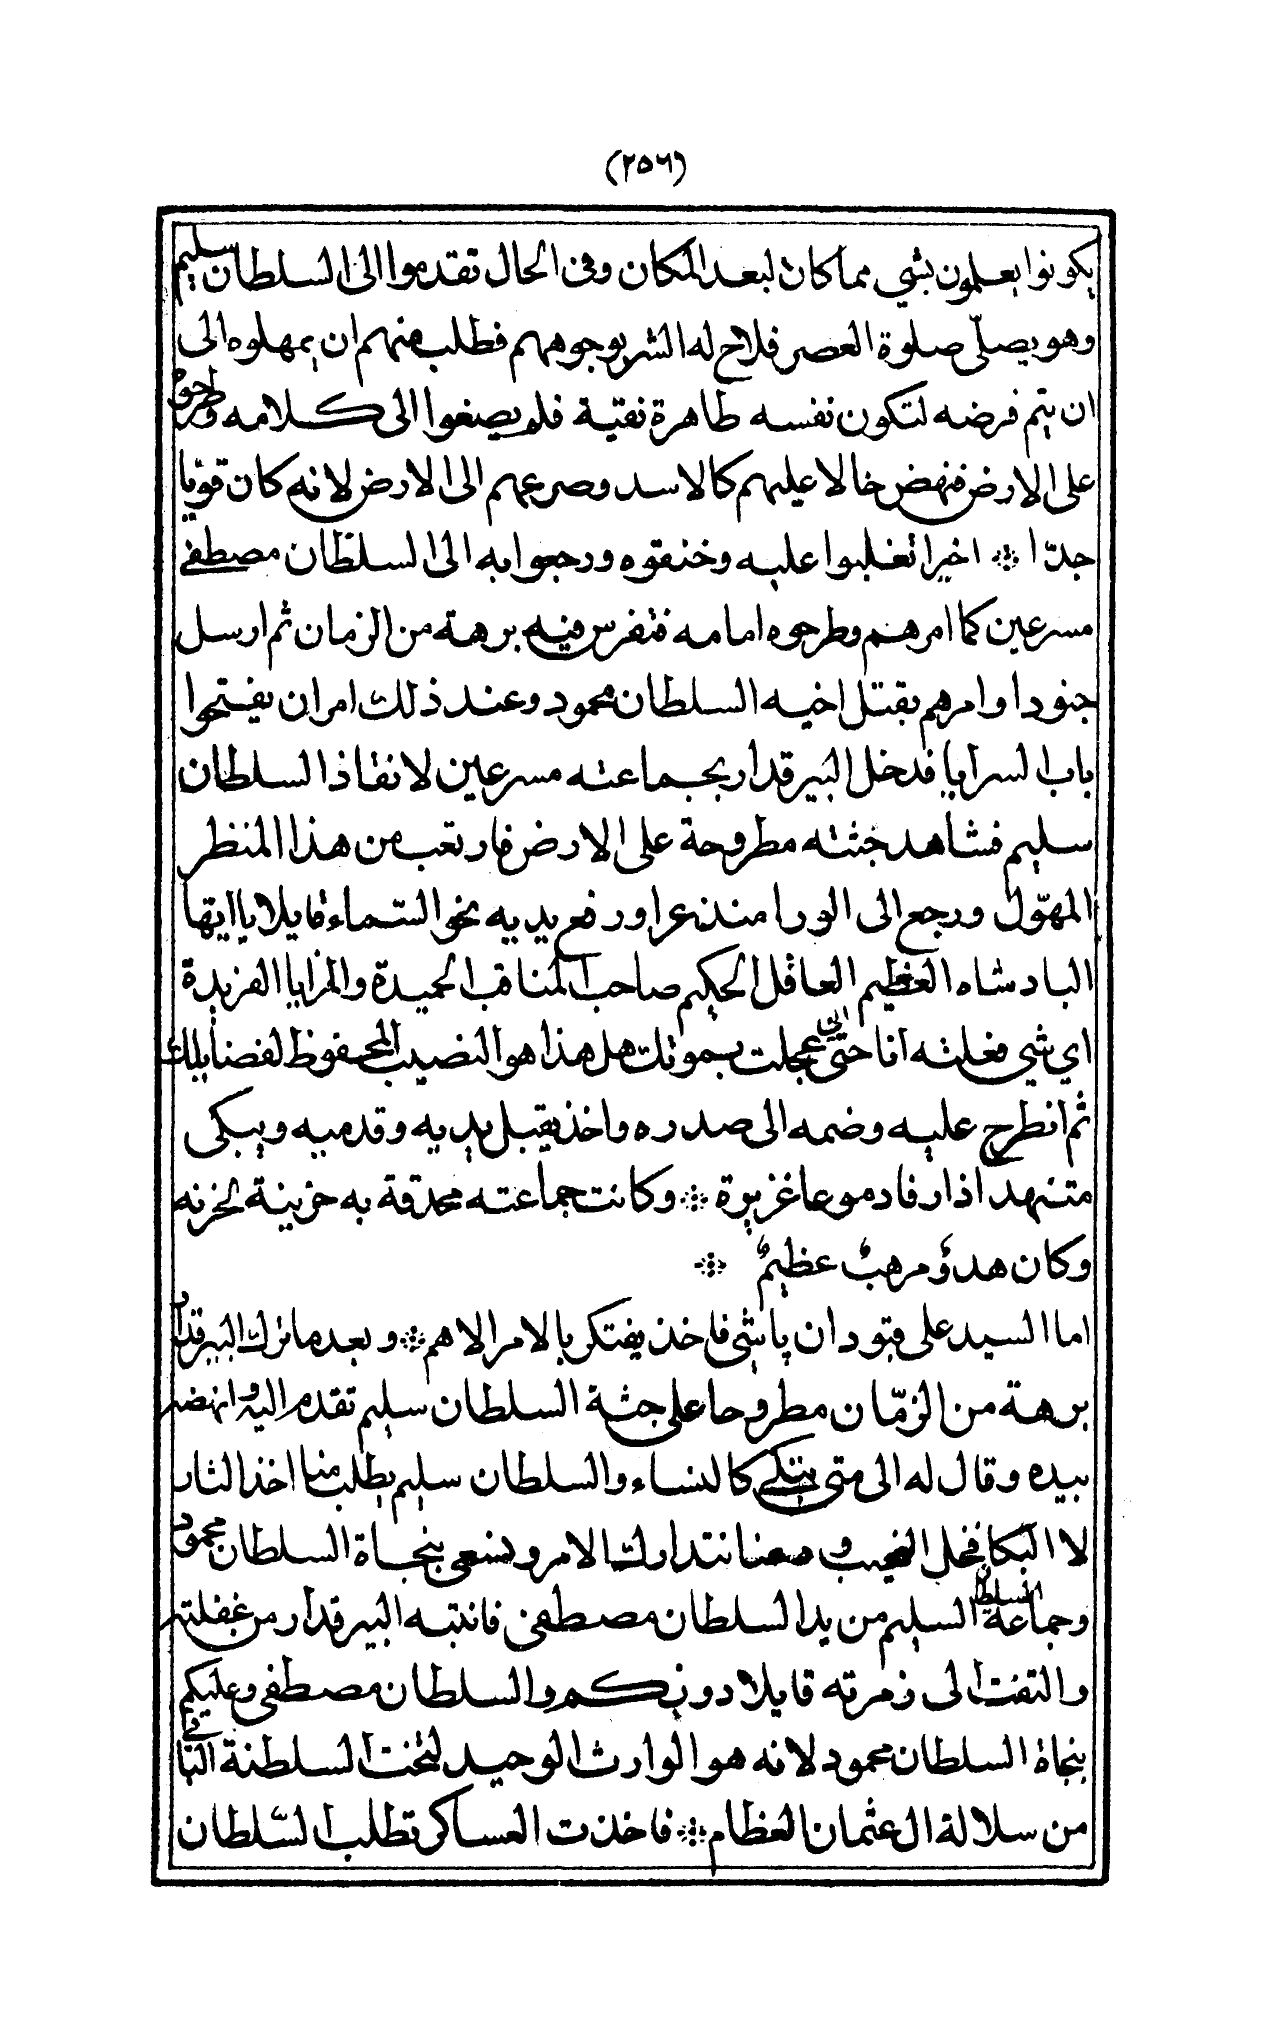 (٢٥٦)
يكونوا يعلمون بشي مما كان لبعد المكان وفي الحال تقدموا الى السلطان سليم
وهو يصلّي صلوة العصر فلاح له الشر بوجوههم فطلب منهم ان يمهلوه الى
ان يتم فرضه لتكون نفسه طاهرة نقية فلم يصغوا الى كلامه وطرحوه
على الارض فنهض حالا عليهم كالاسد وصرعهم الى الارض لانه كان قويّا
جدّا ⁘ اخيرا تغلبوا عليه وخنقوه ورجعوا به الى السلطان مصطفى
مسرعين كما امرهم وطرحوه امامه فتفرس فيه برهة من الزمان ثم ارسل
جنودا وامرهم بقتل اخيه السلطان محمود وعند ذلك امر ان يفتحوا
باب السرايا فدخل البيرقدار بجماعته مسرعين لانقاذ السلطان
سليم فشاهد جثته مطروحة على الارض فارتعب من هذا المنظر
المهوّل ورجع الى الورا منذعرا ورفع يديه نحو السّماء قايلا يا ايها
البادشاه العظيم العاقل الحكيم صاحب المناقب الحميدة والمزايا الفريدة
اي شي فعلته انا حتى انى عجلت بموتك هل هذا هو النصيب المحفوظ لفضايلك
ثم انطرح عليه وضمه الى صدره واخذ يقبل يديه وقدميه ويبكى
متنهدا ذارفا دموعا غزيرة ⁘ وكانت جماعته محدقة به حزينة لحزنه
وكان هدوٌ مرهبٌ عظيمٌ ⁘
اما السيد على قبودان پاشى فاخذ يفتكر بالامر الاهم ⁘ وبعد ما ترك البيرقدار
برهة من الزمّان مطروحا على جثة السلطان سليم تقدم اليه وانهضه
بيده وقال له الى متى تبتكى كالنساء والسلطان سليم يطلب منا اخذ الثار
لا البكا فخل النحيب و معنا نتدارك الامر ونسعى بنجاة السلطان محمود
وجماعة السلطان السليم من يد السلطان مصطفى فانتبه البيرقدار من غفلته
والتفت الى زمرته قايلا دونكم والسلطان مصطفى وعليكم
بنجاة السلطان محمود لانه هو الوارث الوحيد لتخت السلطنة الباقي
من سلالة ال عثمان العظام ⁘ فاخذت العساكر تطلب السّلطان